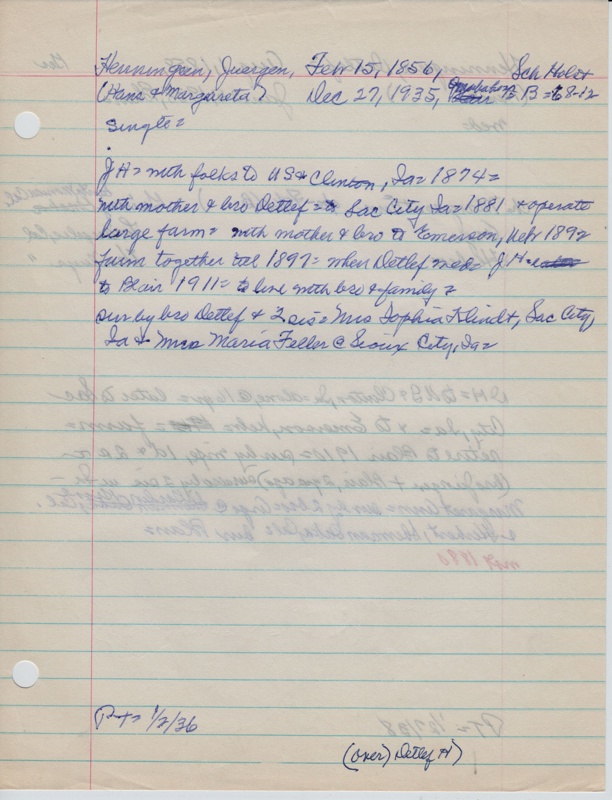 Henningsen, Juergen, Feb 15, 1856, Sch Holst
(Hans & Margareta) Dec 27, 1935, Omahahosp B = 68-12
single =
JH = with folks to US & Clinton, Ia = 1874 =
with mother & bro Detlef = to Sac City Ia = 1881 & operate
large farm = with mother & bro to Emerson, Nebr 1892
farm together til 1897 = when Detlef md = JH =
to Blair 1911 = to live with bro & family =
sur by bro Detlef & 2 sis = Mrs Sophia Klindt, Sac City,
Ia & Mrs Maria Feller @ Sioux City, Ia =
PT = 1/2/36
(over) Detlef H)